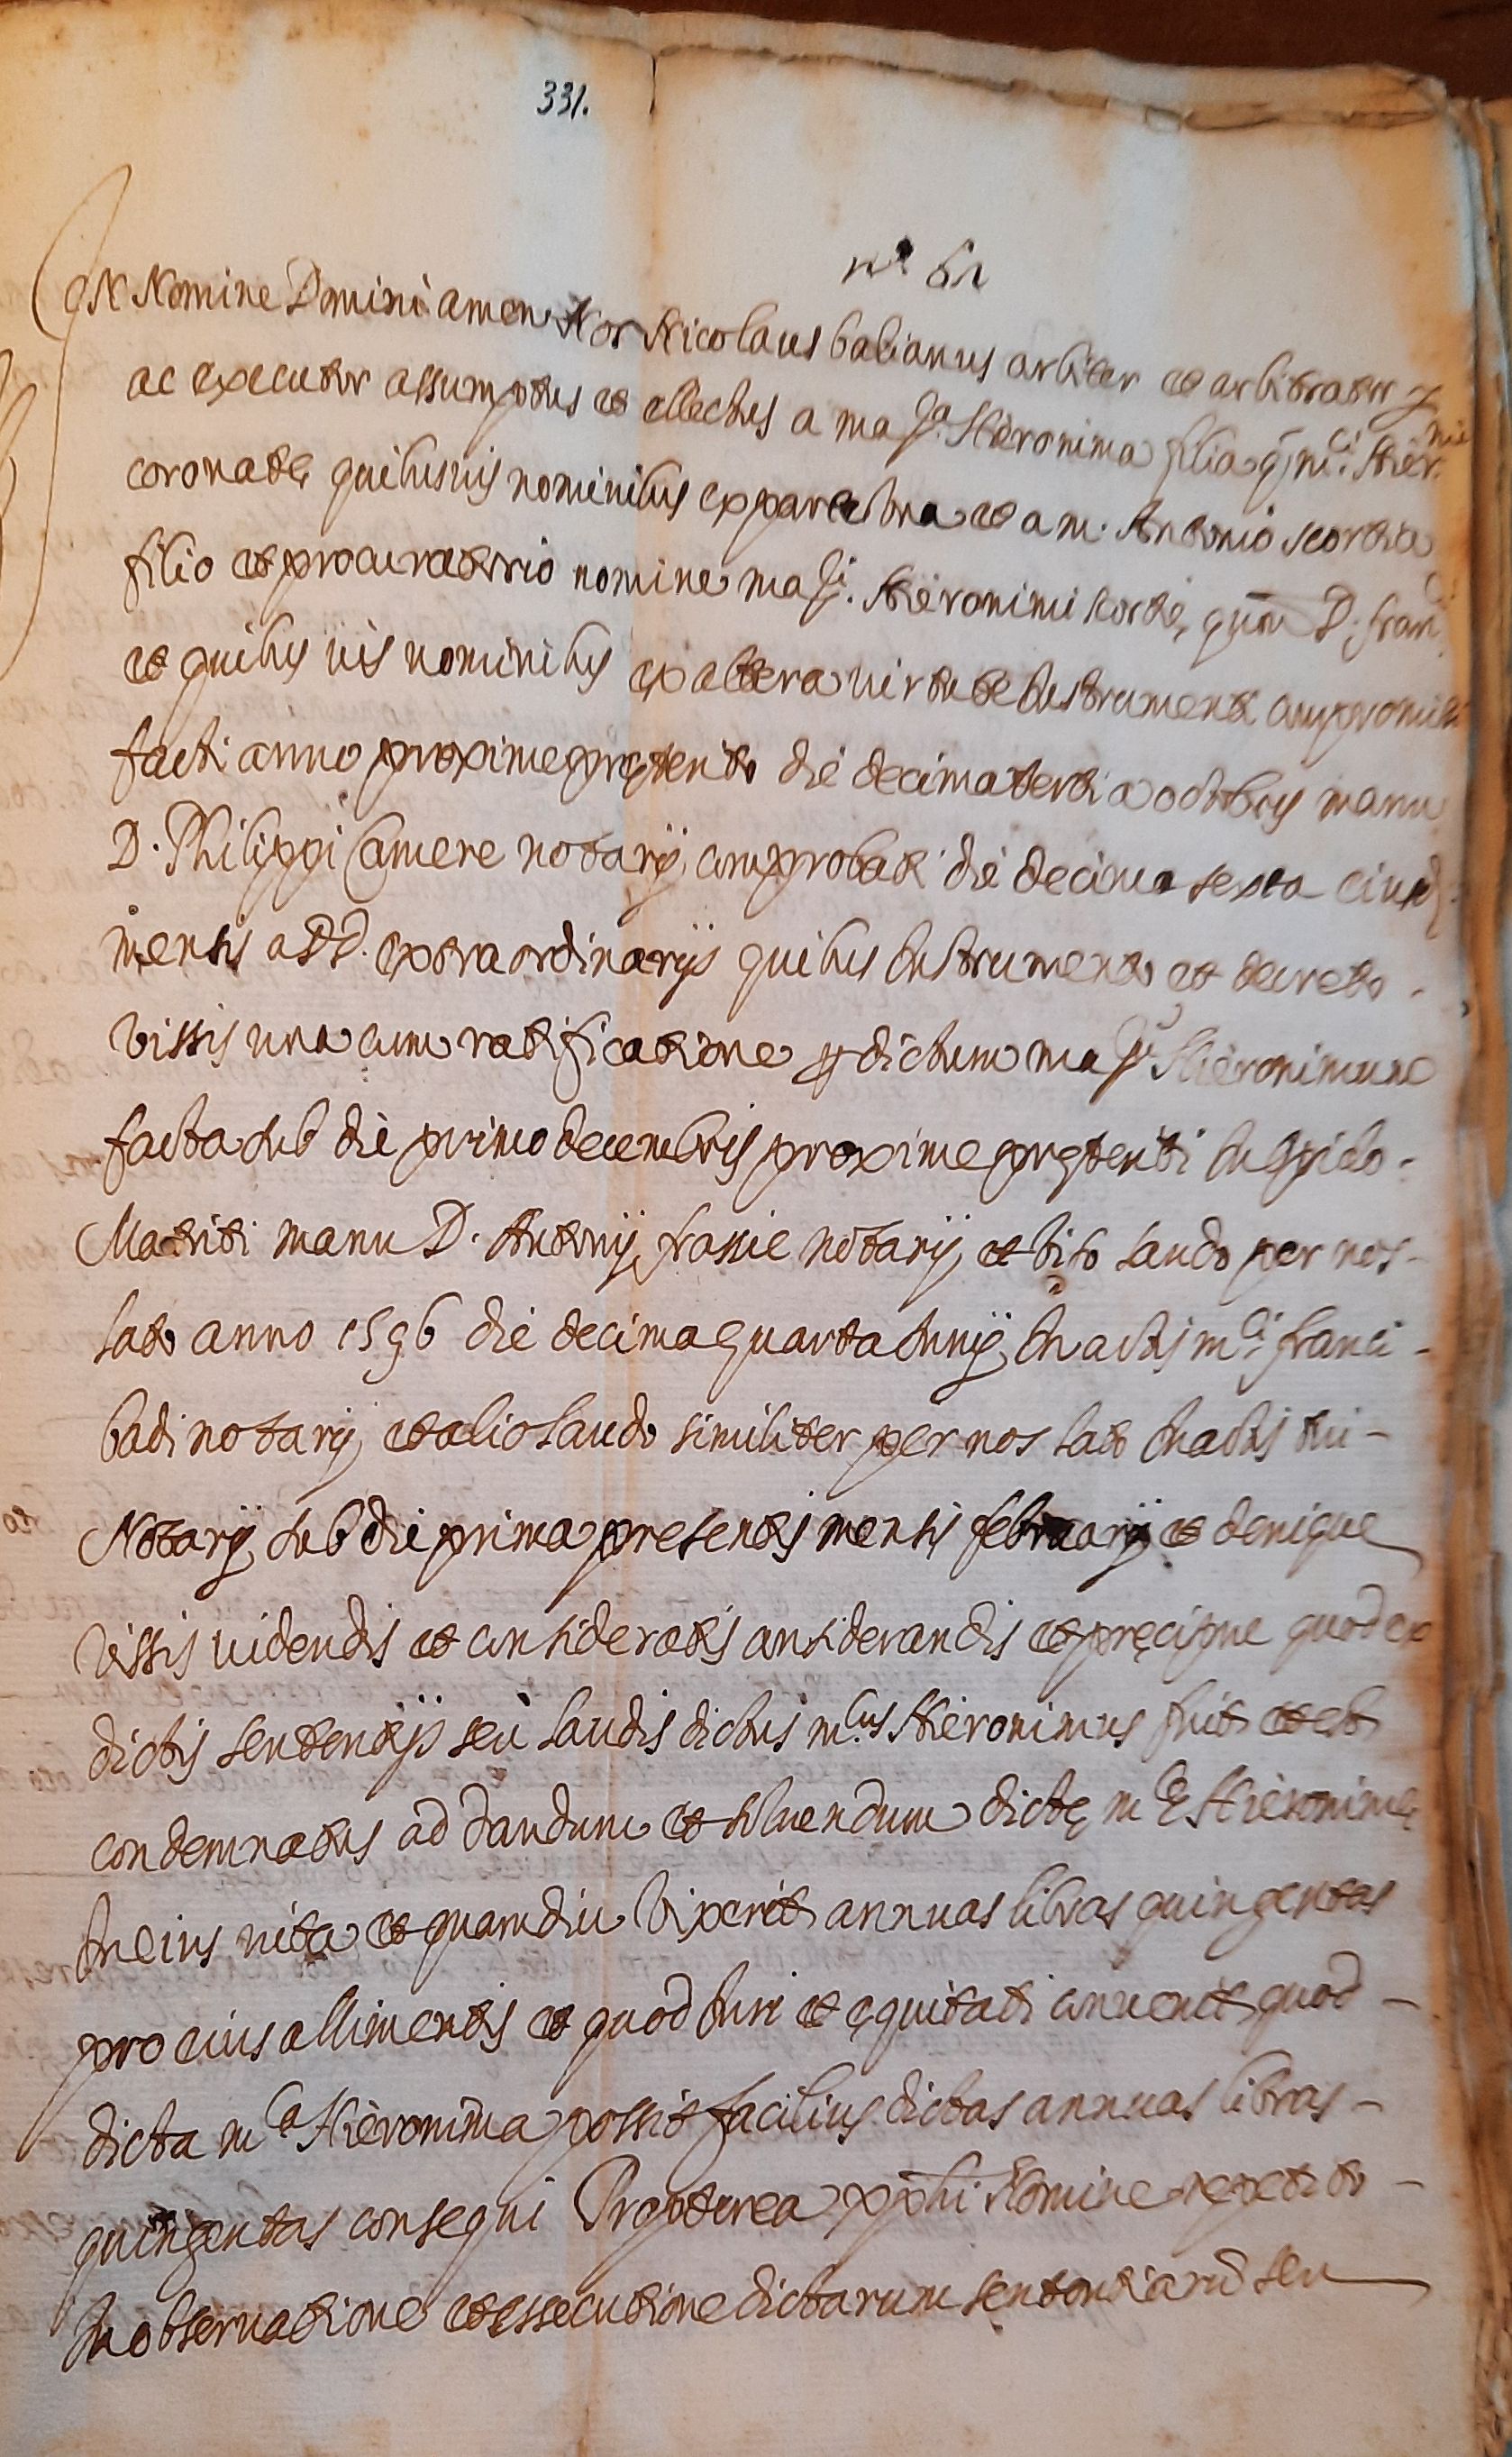 331.
n.º 61
IN Nomine Domini amen Nos Nicolaus balianus arbiter et arbitrator
ac executor assumptus et ellectus a mag.ca Hieronima filia q. m.ci Hier.mi
coronatę quibusvis nominibus ex parte una et a m. Antonio scortia
filio et procuratorio nomine mag.ci Hieronimi scortię qum D. fran.ci
et quibus vis nominibus ex altera virtute Instrumenti compromissi
facti anno proxime pręterito die decimatertia octobris manu
D. Philippi Camere notarij comprobati die decima sexta eiusd.
mensis a DD. extraordinarijs quibus Instrumento et decreto
vissis una cum ratificatione p dictum mag.cum Hieronimum
facta sub die primo decembris proxime pręteriti In opido
Matriti manu D. Antonij frassie notarij et viso laudo per nos
lato anno 1596 die decimaquarta Iunij In actis m.ci franci
badi notarij et alio laudo similiter per nos lato In actis tui
Notarij sub die prima presentis mensis februarij et denique
vissis videndis et consideratis considerandis et pręcipue quod ex
dictis sententijs seu laudis dictus m.cus Hieronimus fuit et est
condemnatus ad dandum et solvendum dictę m.cę Hieronimę
In eius vita et quamdiu vixerit annuas libras quingentas
pro eius allimentis et quod Iuri et ęquitati convenit quod
dicta m.ca Hieronima possit facilius dictas annuas libras
quingentas consequi Propterea xphi Nomine repetito
In observatione et essecutione dictarum sententiarum seu